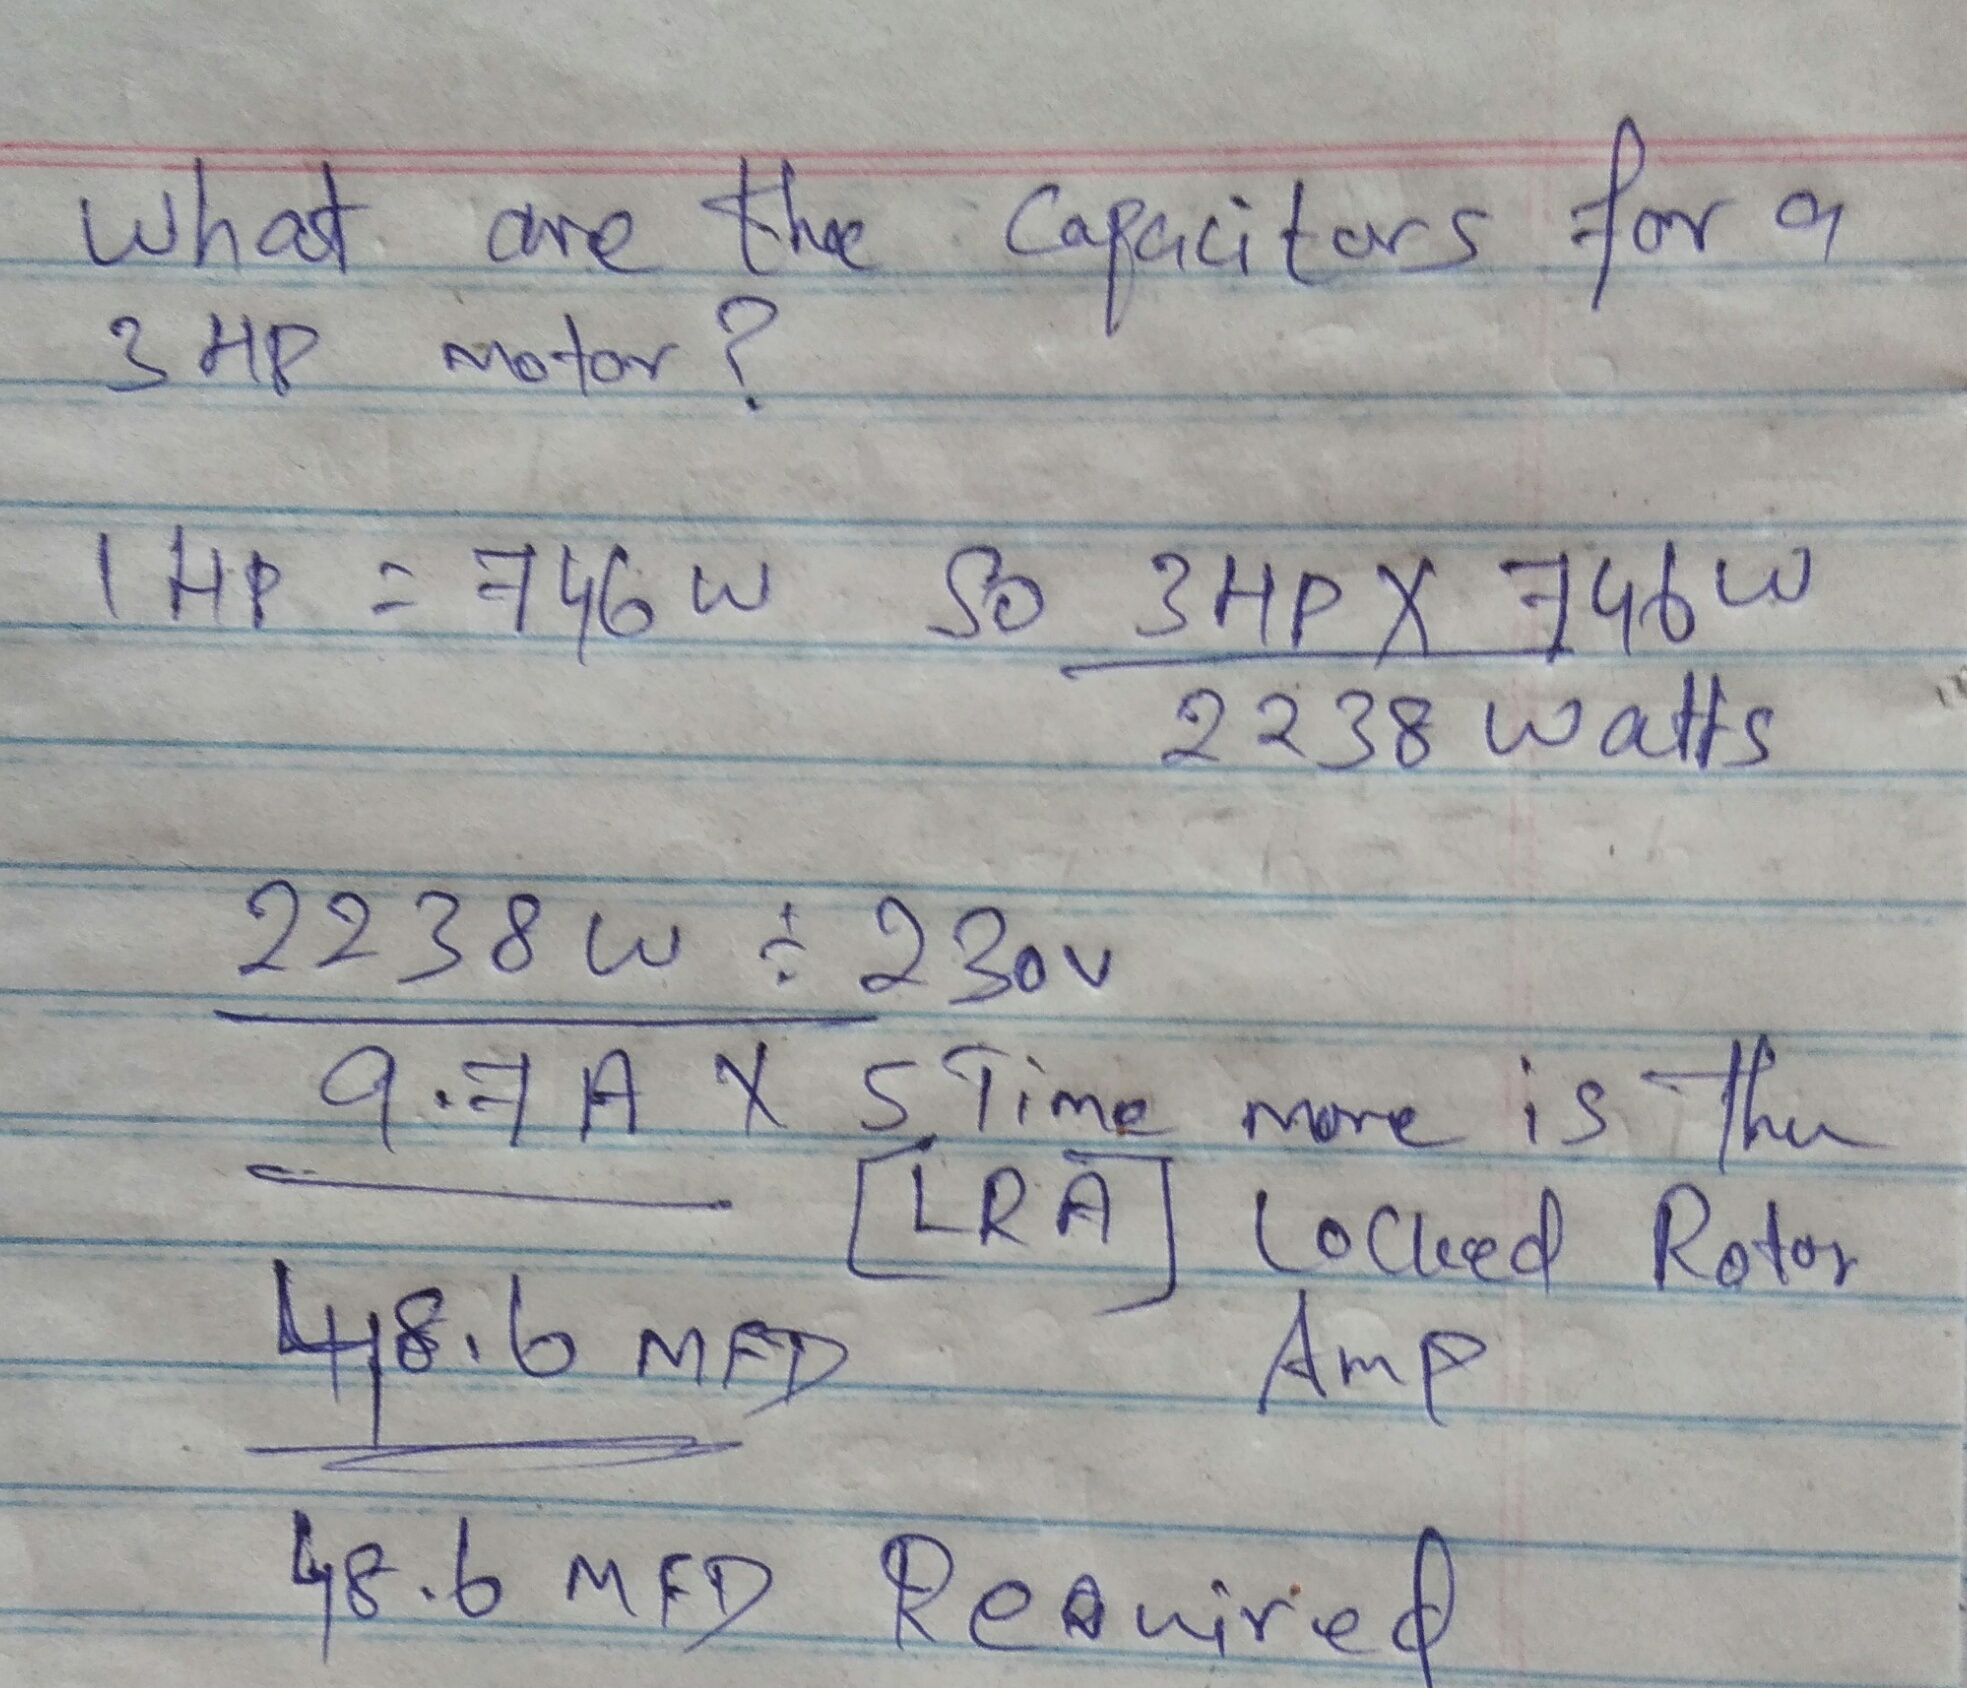 What are the Capacitors for a
3 HP motor?
1 HP = 746 W So 3HP X 746W
2238 Watts
2238 W ÷ 230V
9.7 A X 5 Time more is the
[LRA] Locked Rotor
48.6 MFD Amp
48.6 MFD Required